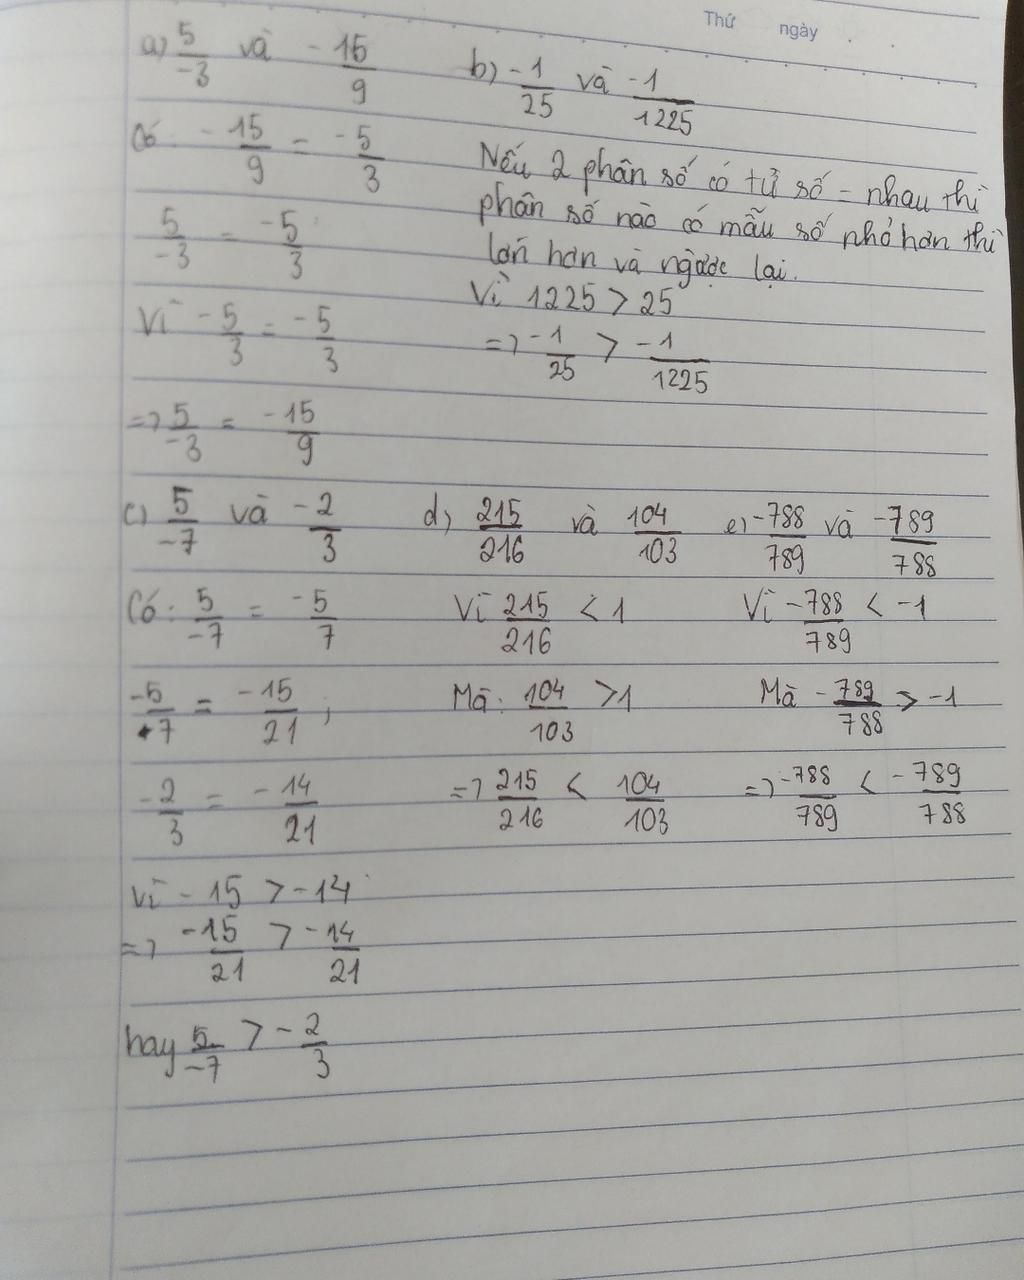 Thứ ngày
a) 5/-3 và -15/9
Có: -15/9 = -5/3
5/-3 = -5/3
Vì -5/3 = -5/3
=> 5/-3 = -15/9
b) -1/25 và -1/1225
Nếu 2 phân số có tử số = nhau thì
phân số nào có mẫu số nhỏ hơn thì
lớn hơn và ngược lại.
Vì 1225 > 25
=> -1/25 > -1/1225
c) 5/-7 và -2/3
Có: 5/-7 = -5/7
-5/7 = -15/21;
-2/3 = -14/21
Vì -15 > -14
=> -15/21 > -14/21
hay 5/-7 > -2/3
d) 215/216 và 104/103
Vì 215/216 < 1
Mà: 104/103 > 1
=> 215/216 < 104/103
e) -788/789 và -789/788
Vì -788/789 < -1
Mà -789/788 > -1
=> -788/789 < -789/788